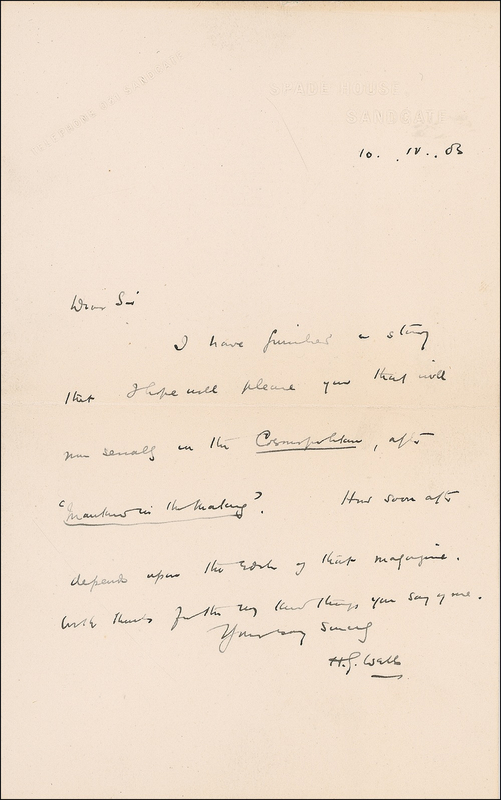 SPADE HOUSE,
SANDGATE
10. IV. 03
Dear Sir
I have finished a story
that I hope will please you that will
run serially in the Cosmopolitan, after
'Mankind in the Making'. How soon after
depends upon the Editor of that magazine.
With thanks for the very kind things you say of me.
Yours very sincerely
H.G. Wells